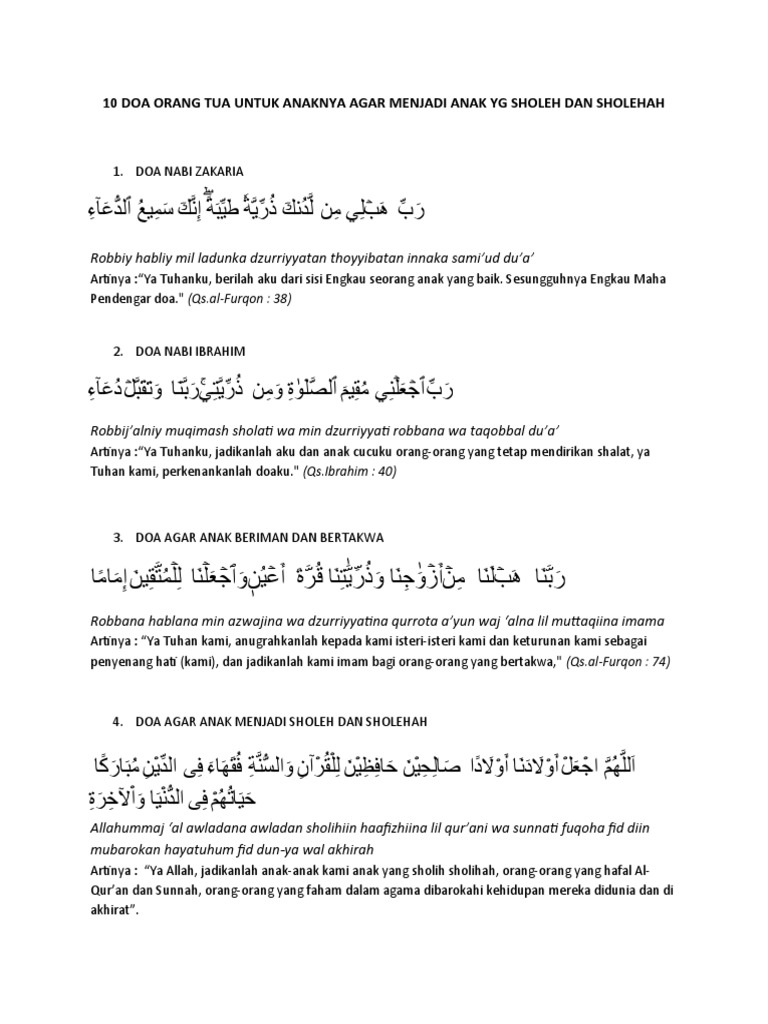 10 DOA ORANG TUA UNTUK ANAKNYA AGAR MENJADI ANAK YG SHOLEH DAN SHOLEHAH
1. DOA NABI ZAKARIA
رَبِّ هَبۡلِي مِن لَّدُنكَ ذُرِّيَّةٗ طَيِّبَةًۖ إِنَّكَ سَمِيعُ ٱلدُّعَآءِ
Robbiy habliy mil ladunka dzurriyyatan thoyyibatan innaka sami’ud du’a’
Artinya :“Ya Tuhanku, berilah aku dari sisi Engkau seorang anak yang baik. Sesungguhnya Engkau Maha
Pendengar doa." (Qs.al-Furqon : 38)
2. DOA NABI IBRAHIM
رَبِّ ٱجۡعَلۡنِي مُقِيمَ ٱلصَّلَوٰةِ وَمِن ذُرِّيَّتِيۚ رَبَّنَا وَتَقَبَّلۡ دُعَآءِ
Robbij’alniy muqimash sholati wa min dzurriyyati robbana wa taqobbal du’a’
Artinya :“Ya Tuhanku, jadikanlah aku dan anak cucuku orang-orang yang tetap mendirikan shalat, ya
Tuhan kami, perkenankanlah doaku." (Qs.Ibrahim : 40)
3. DOA AGAR ANAK BERIMAN DAN BERTAKWA
رَبَّنَا هَبۡلَنَا مِنۡ أَزۡوَٰجِنَا وَذُرِّيَّٰتِنَا قُرَّةَ أَعۡيُنٖ وَٱجۡعَلۡنَا لِلۡمُتَّقِينَ إِمَامًا
Robbana hablana min azwajina wa dzurriyyatina qurrota a’yun waj ‘alna lil muttaqiina imama
Artinya : “Ya Tuhan kami, anugrahkanlah kepada kami isteri-isteri kami dan keturunan kami sebagai
penyenang hati (kami), dan jadikanlah kami imam bagi orang-orang yang bertakwa," (Qs.al-Furqon : 74)
4. DOA AGAR ANAK MENJADI SHOLEH DAN SHOLEHAH
اَللَّهُمَّ اجْعَلْ أَوْلَادَنَا أَوْلَادًا صَالِحِيْنَ حَافِظِيْنَ لِلْقُرْآنِ وَالسُّنَّةِ فُقَهَاءَ فِى الدِّيْنِ مُبَارَكًا
حَيَاتُهُمْ فِى الدُّنْيَا وَالْآخِرَةِ
Allahummaj ‘al awladana awladan sholihiin haafizhiina lil qur’ani wa sunnati fuqoha fid diin
mubarokan hayatuhum fid dun-ya wal akhirah
Artinya : “Ya Allah, jadikanlah anak-anak kami anak yang sholih sholihah, orang-orang yang hafal Al-
Qur’an dan Sunnah, orang-orang yang faham dalam agama dibarokahi kehidupan mereka didunia dan di
akhirat”.